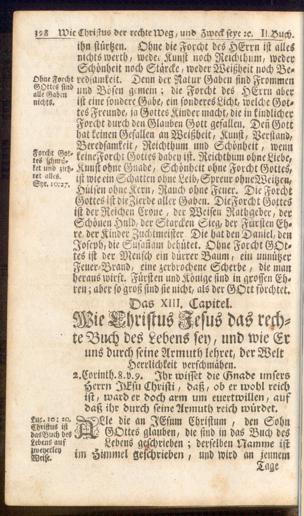 198 Wie Christus der rechte Weg, und Zweck seye ꝛc. II. Buch.
ihn stürtzen. Ohne die Forcht des HErrn ist alles
nichts werth, weder Kunst noch Reichthum, weder
Schönheit noch Stärcke, weder Weißheit noch Be-
redsamkeit. Denn der Natur Gaben sind Frommen
Ohne Forcht
GOttes sind
alle Gaben
nichts.
und Bösen gemein; die Forcht des HErrn aber
ist eine sonder Gabe, ein sonders Licht, welche Got-
tes Freunde, ja Gottes Kinder macht, die in kindlicher
Forcht durch den Glauben Gott gefallen. Denn Gott
hat keinen Gefallen an Weißheit, Kunst, Verstand,
Beredsamkeit, Reichthum und Schönheit, wenn
Forcht Got-
tes schmü-
cket und zieh-
ret alles.
Syr. 10:27.
keine Forcht Gottes dabey ist. Reichthum ohne Liebe,
Kunst ohne Gnade, Schönheit ohne Forcht Gottes,
ist wie ein Schatten ohne Leib, Spreu ohne Weitzen,
Hülsen ohne Kern, Rauch ohne Feuer. Die Forcht
Gottes ist die Zierde aller Gaben. Die Forcht Gottes
ist der Reichen Crone, der Weisen Rathgeber, der
Schönen Huld, der Starcken Sieg, der Fürsten Eh-
re, der Kinder Zuchtmeister. Die hat den Daniel, den
Joseph, die Susanam behütet. Ohne Forcht GOt-
tes ist der Mensch ein dürrer Baum, ein unnützer
Feuer-Brand, eine zerbrochene Scherbe, die man
heraus wirft. Fürsten und Könige sind in grossen Eh-
ren; aber so groß sind sie nicht, als der GOtt förchtet.
Das XIII. Capitel.
Wie Christus Jesus das rech-
te Buch des Lebens sey, und wie Er
uns durch seine Armuth lehret, der Welt
Herrlichkeit verschmähen.
2. Corinth. 8. v. 9. Ihr wisset die Gnade unsers
Herrn JEsu Christi, daß, ob er wohl reich
ist, ward er doch arm um euertwillen, auf
daß ihr durch seine Armuth reich würdet.
Luc. 10: 20.
Christus ist
das Buch des
Lebens auf
zweyerley
Weise.
Alle die an JEsum Christum, den Sohn
GOttes glauben, die sind in das Buch des
Lebens geschrieben; derselben Namme ist
im Himmel geschrieben, und wird an jenem
Tage